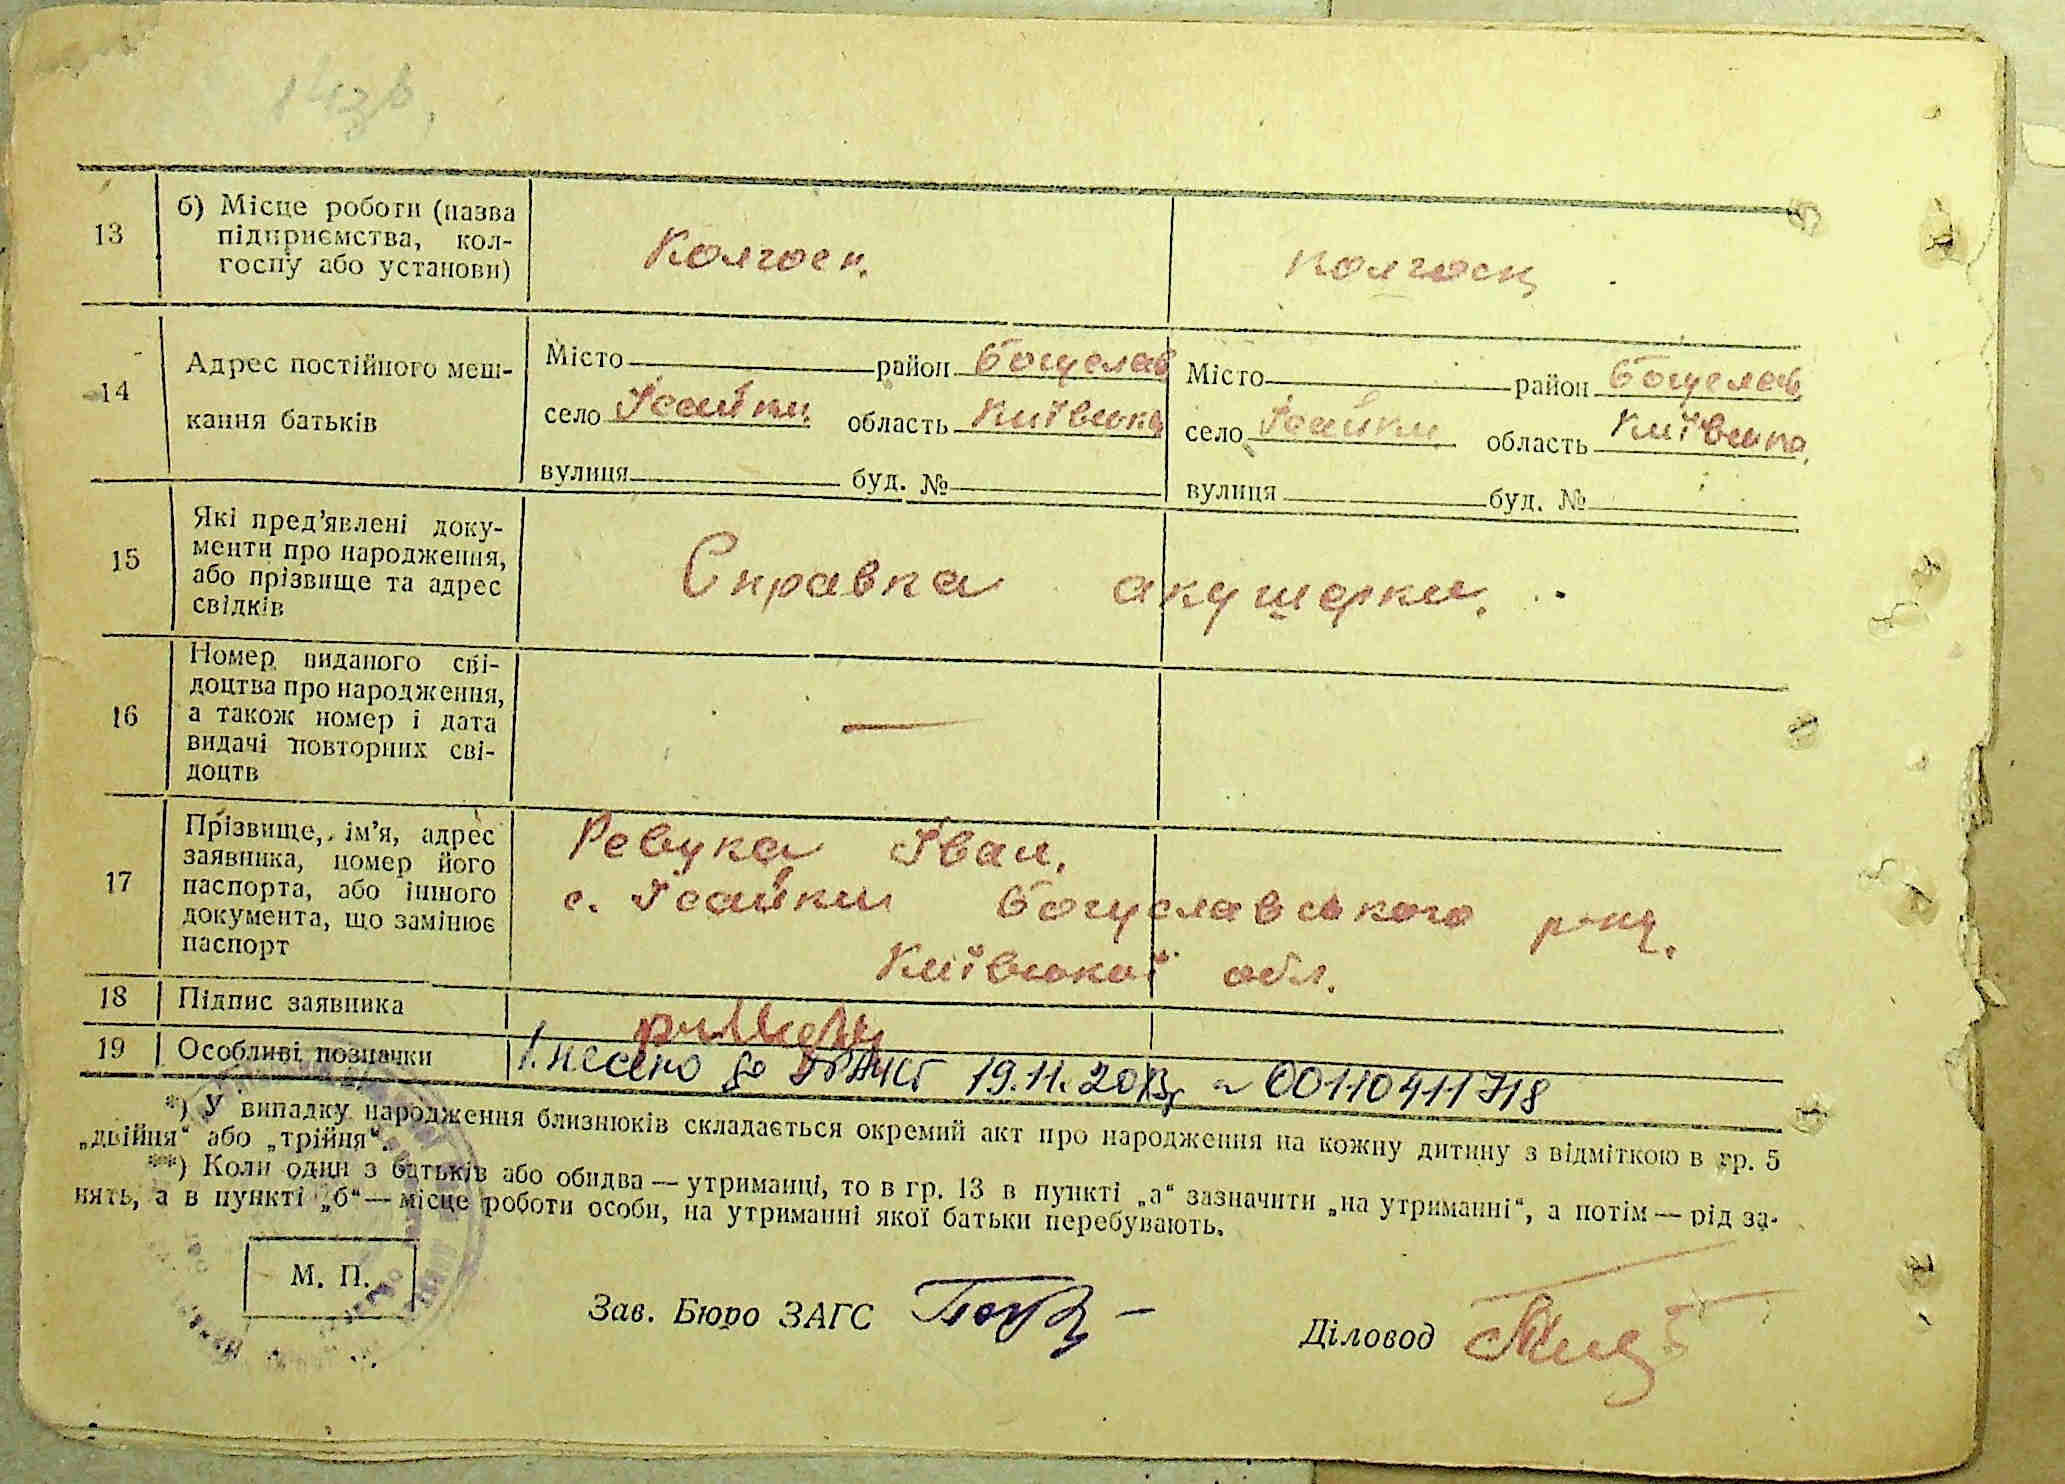 13
б) Місце роботи (назва
підприємства, кол-
госпу або установи)
Колгосп.
колгосп
14
Адрес постійного меш-
кання батьків
Місто район Богуслав
село Ісайки область Київська
вулиця буд. №
Місто район Богуслав
село Ісайки область Київська
вулиця буд. №
15
Які пред’явлені доку-
менти про народження,
або прізвище та адрес
свідків
Справка акушерки.
16
Номер виданого сві-
доцтва про народження,
а також номер і дата
видачі повторних сві-
доцтв
—
17
Прізвище, ім’я, адрес
заявника, номер його
паспорта, або іншого
документа, що замінює
паспорт
Ревука Іван.
с. Ісайки Богуславського р-ну.
Київської обл.
18
Підпис заявника
19
Особливі позначки
Внесено до ДРАЦСГ 19.11.2013р № 00110411718
*) У випадку народження близнюків складається окремий акт про народження на кожну дитину з відміткою в гр. 5
„двійня“ або „трійня“.
**) Коли один з батьків або обидва — утриманці, то в гр. 13 в пункті „а“ зазначити „на утриманні“, а потім — рід за-
нять, а в пункті „б“ — місце роботи особи, на утриманні якої батьки перебувають.
М. П.
Зав. Бюро ЗАГС
Діловод